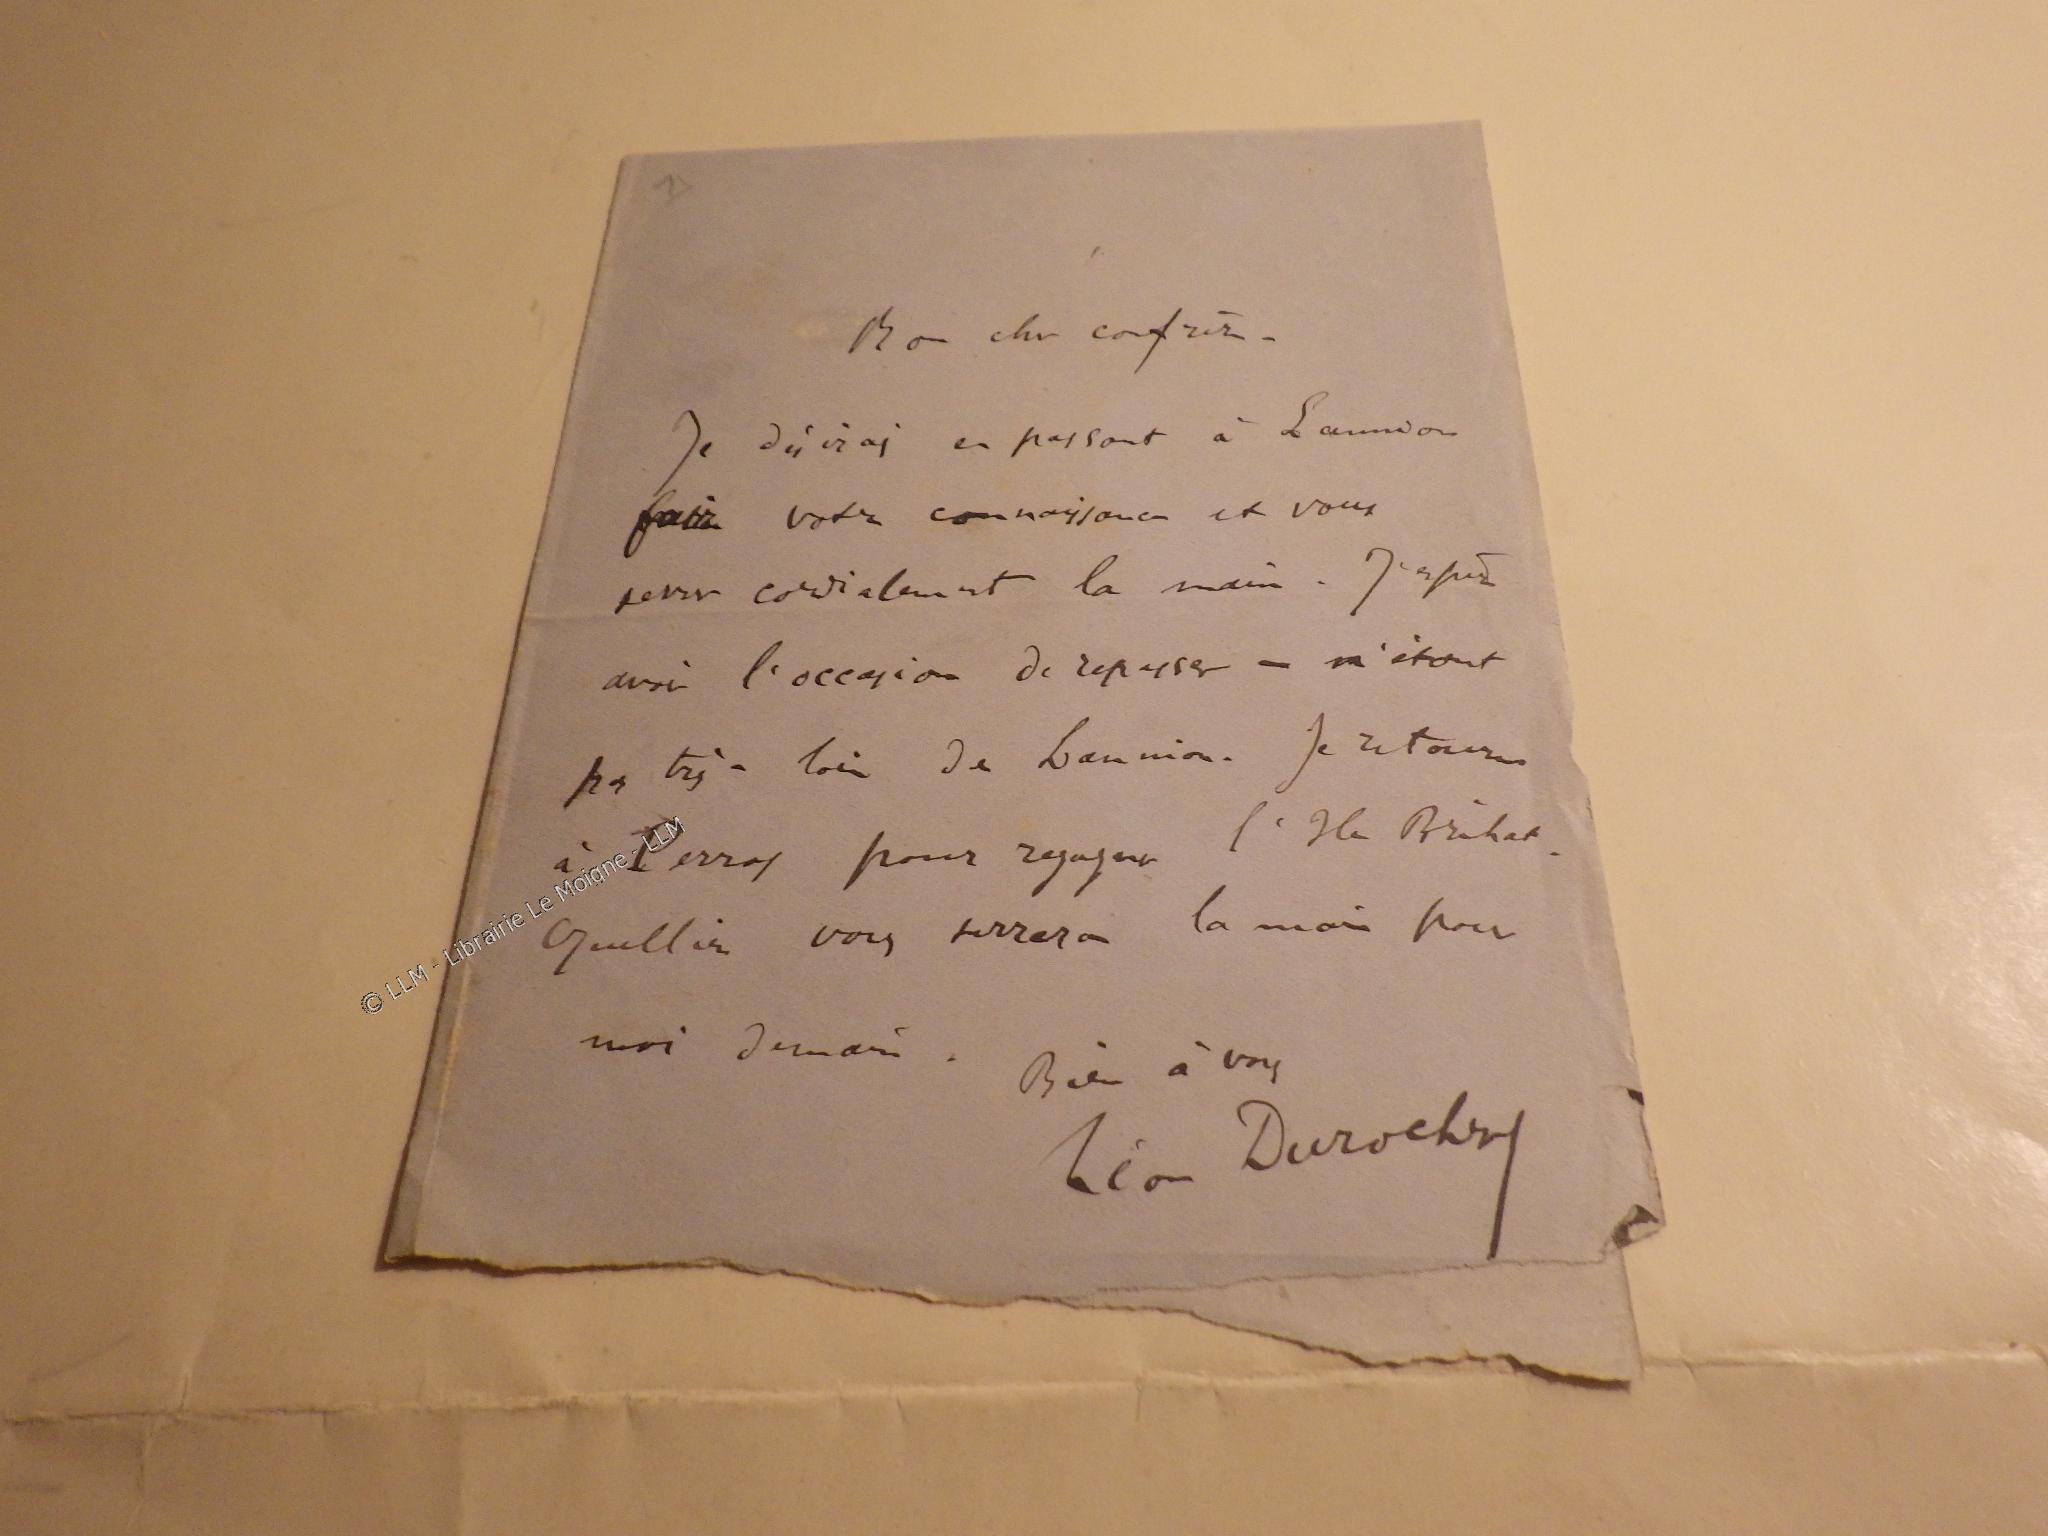 Mon cher confrère.
Je désirais en passant à Lannion
faire votre connaissance et vous
serrer cordialement la main. J'espère
avoir l'occasion de repasser - n'étant
pas très-loin de Lannion. Je retourne
à Perros pour regagner l'Ile Bréhat.
Quellien vous serrera la main pour
moi demain.
Bien à vous
Léon Durocher
© LLM - Librairie Le Moigne - LLM